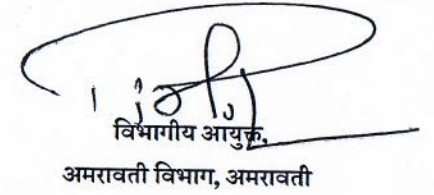 विभागीय आयुक्त,
अमरावती विभाग, अमरावती